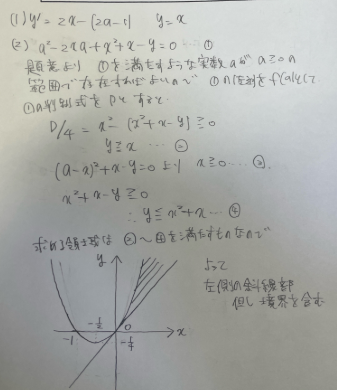 (1) y' = 2x - (2a-1)  y = x
(2) a² - 2xa + x² + x - y = 0 … ①
題意より ①を満たすような実数aが a≧0の
範囲で存在すればよいので ①の左辺をf(a)として
①の判別式をDとすると
D/4 = x² - (x² + x - y) ≧ 0
y ≧ x … ②
(a-x)² + x - y = 0 より x ≧ 0 … ③
x² + x - y ≧ 0
∴ y ≦ x² + x … ④
求める領域は ②〜④を満たすものなので
よって
左側の斜線部
但し境界を含む
y
x
-1
-1/2
0
-1/4